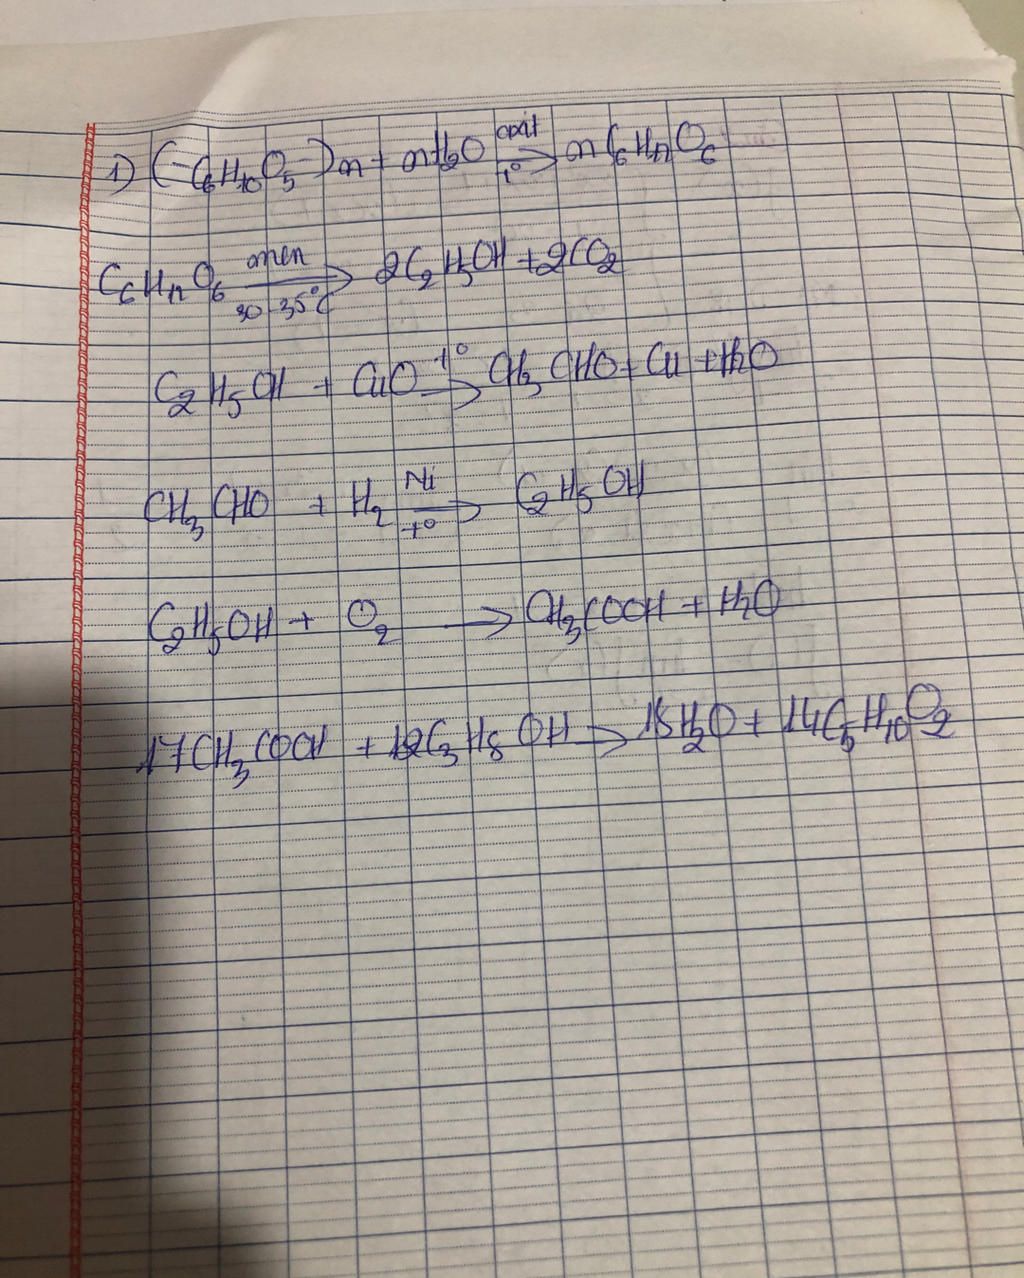 1) (-C6H10O5-)n + nH2O axit → t° nC6H12O6
C6H12O6 men → 30-35°C 2C2H5OH + 2CO2
C2H5OH + CuO t° → CH3CHO + Cu + H2O
CH3CHO + H2 Ni → t° C2H5OH
C2H5OH + O2 → CH3COOH + H2O
17CH3COOH + 12C3H8OH → 18H2O + 14C5H10O2